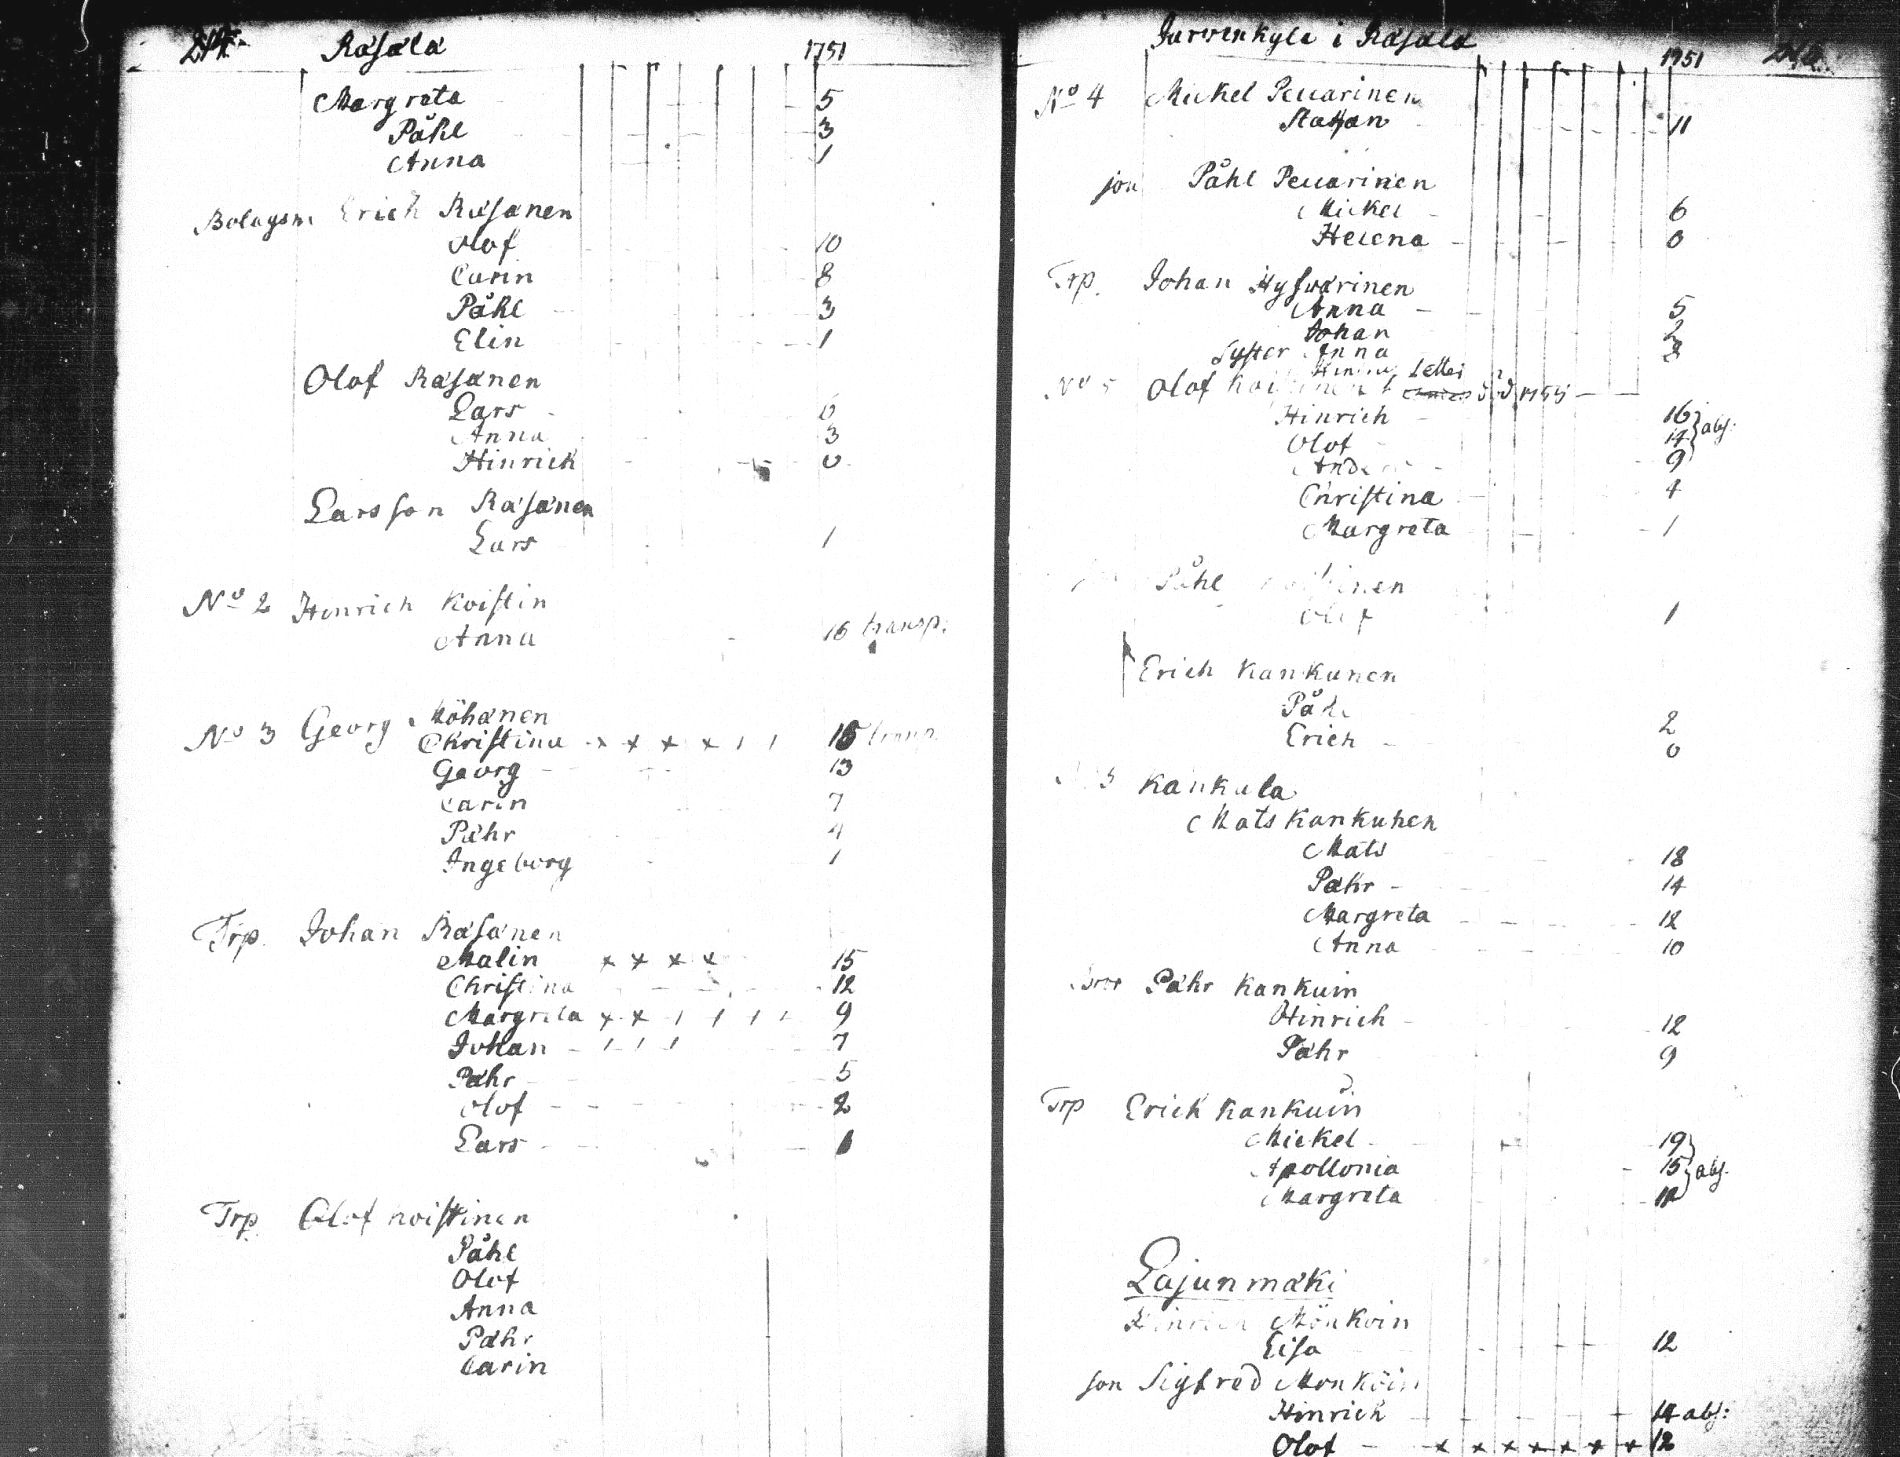 214. Räsälä 1751
Margreta 5
Påhl 3
Anna 1
Bolagsm Erich Räsänen
Olof 10
Carin 8
Påhl 3
Elin 1
Olof Räsänen
Lars 6
Anna 3
Hinrich 0
Larsson Räsänen
Lars 1
No 2 Hinrich Koistin
Anna 16 transp.
No 3 Georg Möhönen
Christina x x x x / / 15 transp
Georg 13
Carin 7
Pähr 4
Ingeborg 1
Trp. Johan Räsänen
Malin x x x x 15
Christina 12
Margreta x x / / / / 9
Johan / / / 7
Pähr 5
Olof 2
Lars
Trp. Olof Koistinen
Påhl
Olof
Anna
Pähr
Carin
Jarvenkyle i Räsälä 1751
No 4 Mickel Peuarinen
Staffan 11
son Påhl Peuarinen
Mickel 6
Helena 0
Trp. Johan Hyfvärinen
Anna 5
Johan 2
Syster Anna
No 5 Olof
Hinrich 16
Olof 14 abs:
Anders 9
Christina 4
Margreta 1
Påhl
Olof 1
Erich Kankunen
Påhl 2
Erich 0
Kankula
Mats Kankunen
Mats 18
Pähr 14
Margreta 12
Anna 10
Bror Pähr Kankuin
Hinrich 12
Pähr 9
Trp Erich Kankuin
Mickel 19
Apollonia 15 abs.
Margreta 12
Lajunmäki
Hinrich Mönköin
Lisa 12
son Sigfred Mönköin
Hinrich 14 abs:
Olof x x x x x x x 12